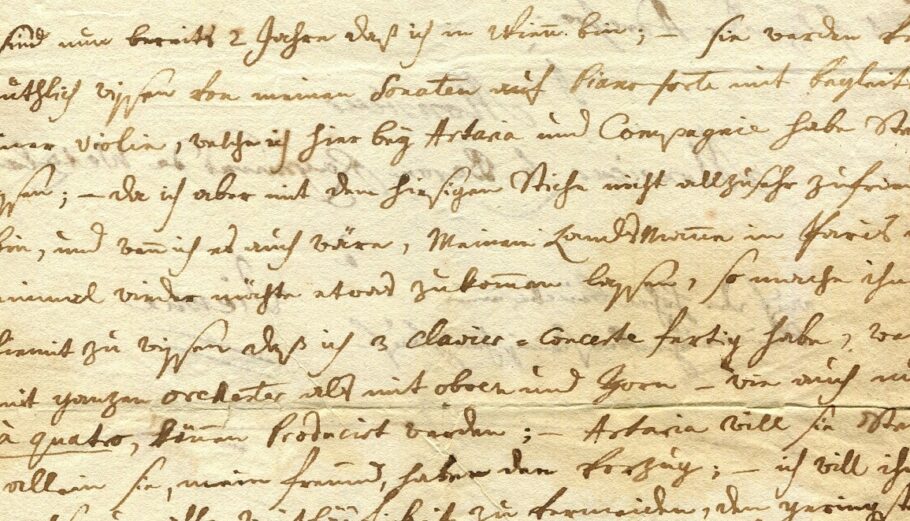 sind nun bereits 2 Jahre daß ich in Wienn bin; – sie werden
uthlich wissen von meinen Sonaten auf Piano forte mit begleit
iner violin, welche ich hier bey Artaria und Compagnie habe Ste
ssen; – da ich aber mit dem hiesigen Stiche nicht allzusehr zufrie
bin, und wenn ich es auch wäre, Meinem Landsmanne in Paris
einmal wieder möchte etwas zukommen lassen, so mache ihn
hiemit zu wissen daß ich 3 Clavier=Concerte fertig habe, we
mit ganzen orchester, als mit oboen und Horn – wie auch nu
à quatro, können Producirt werden; – Artaria will sie Ste
allein sie, mein freund, haben den vorzug; – ich will ihn
zu vermeiden, den gering st